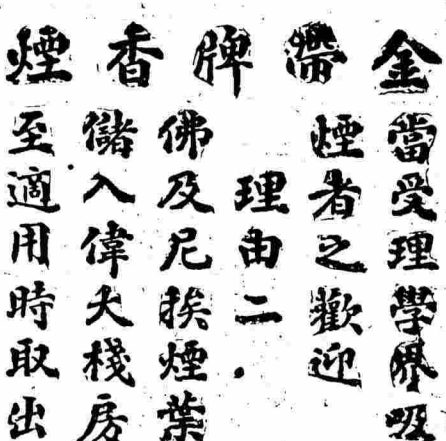 金帶牌香煙
當受理學界吸
煙者之歡迎
理由二.
佛及尼挨煙葉
儲入偉大棧房
至適用時取出